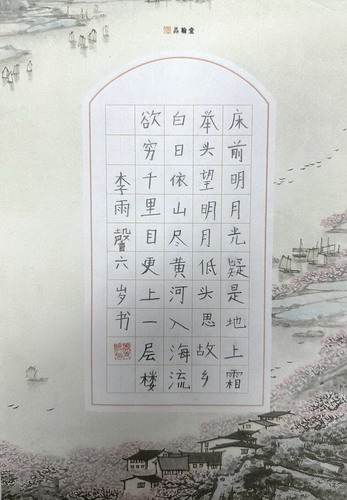 品翰堂
床前明月光疑是地上霜
举头望明月低头思故乡
白日依山尽黄河入海流
欲穷千里目更上一层楼
李雨馨六岁书